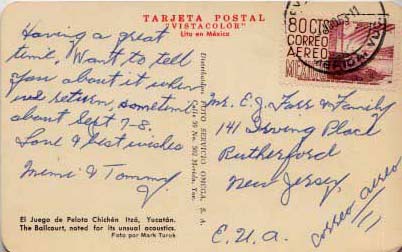 TARJETA POSTAL
"VISTACOLOR"
Lito en México
Having a great
time. Want to tell
you about it when
we return, sometime
about Sept 7-8.
Love & best wishes
Mimi & Tommy
El Juego de Pelota Chichén Itzá, Yucatán.
The Ballcourt, noted for its unusual acoustics.
Foto por Mark Turok
Distribuidor: FOTO SERVICIO OMEGA, S. A.
Calle 59 No. 502 Mérida, Yuc.
80 CTS
CORREO
AEREO
MEXICO
Mr. E. J. Farr & Family
141 Irving Place
Rutherford
New Jersey,
E.U.A.
correo aereo